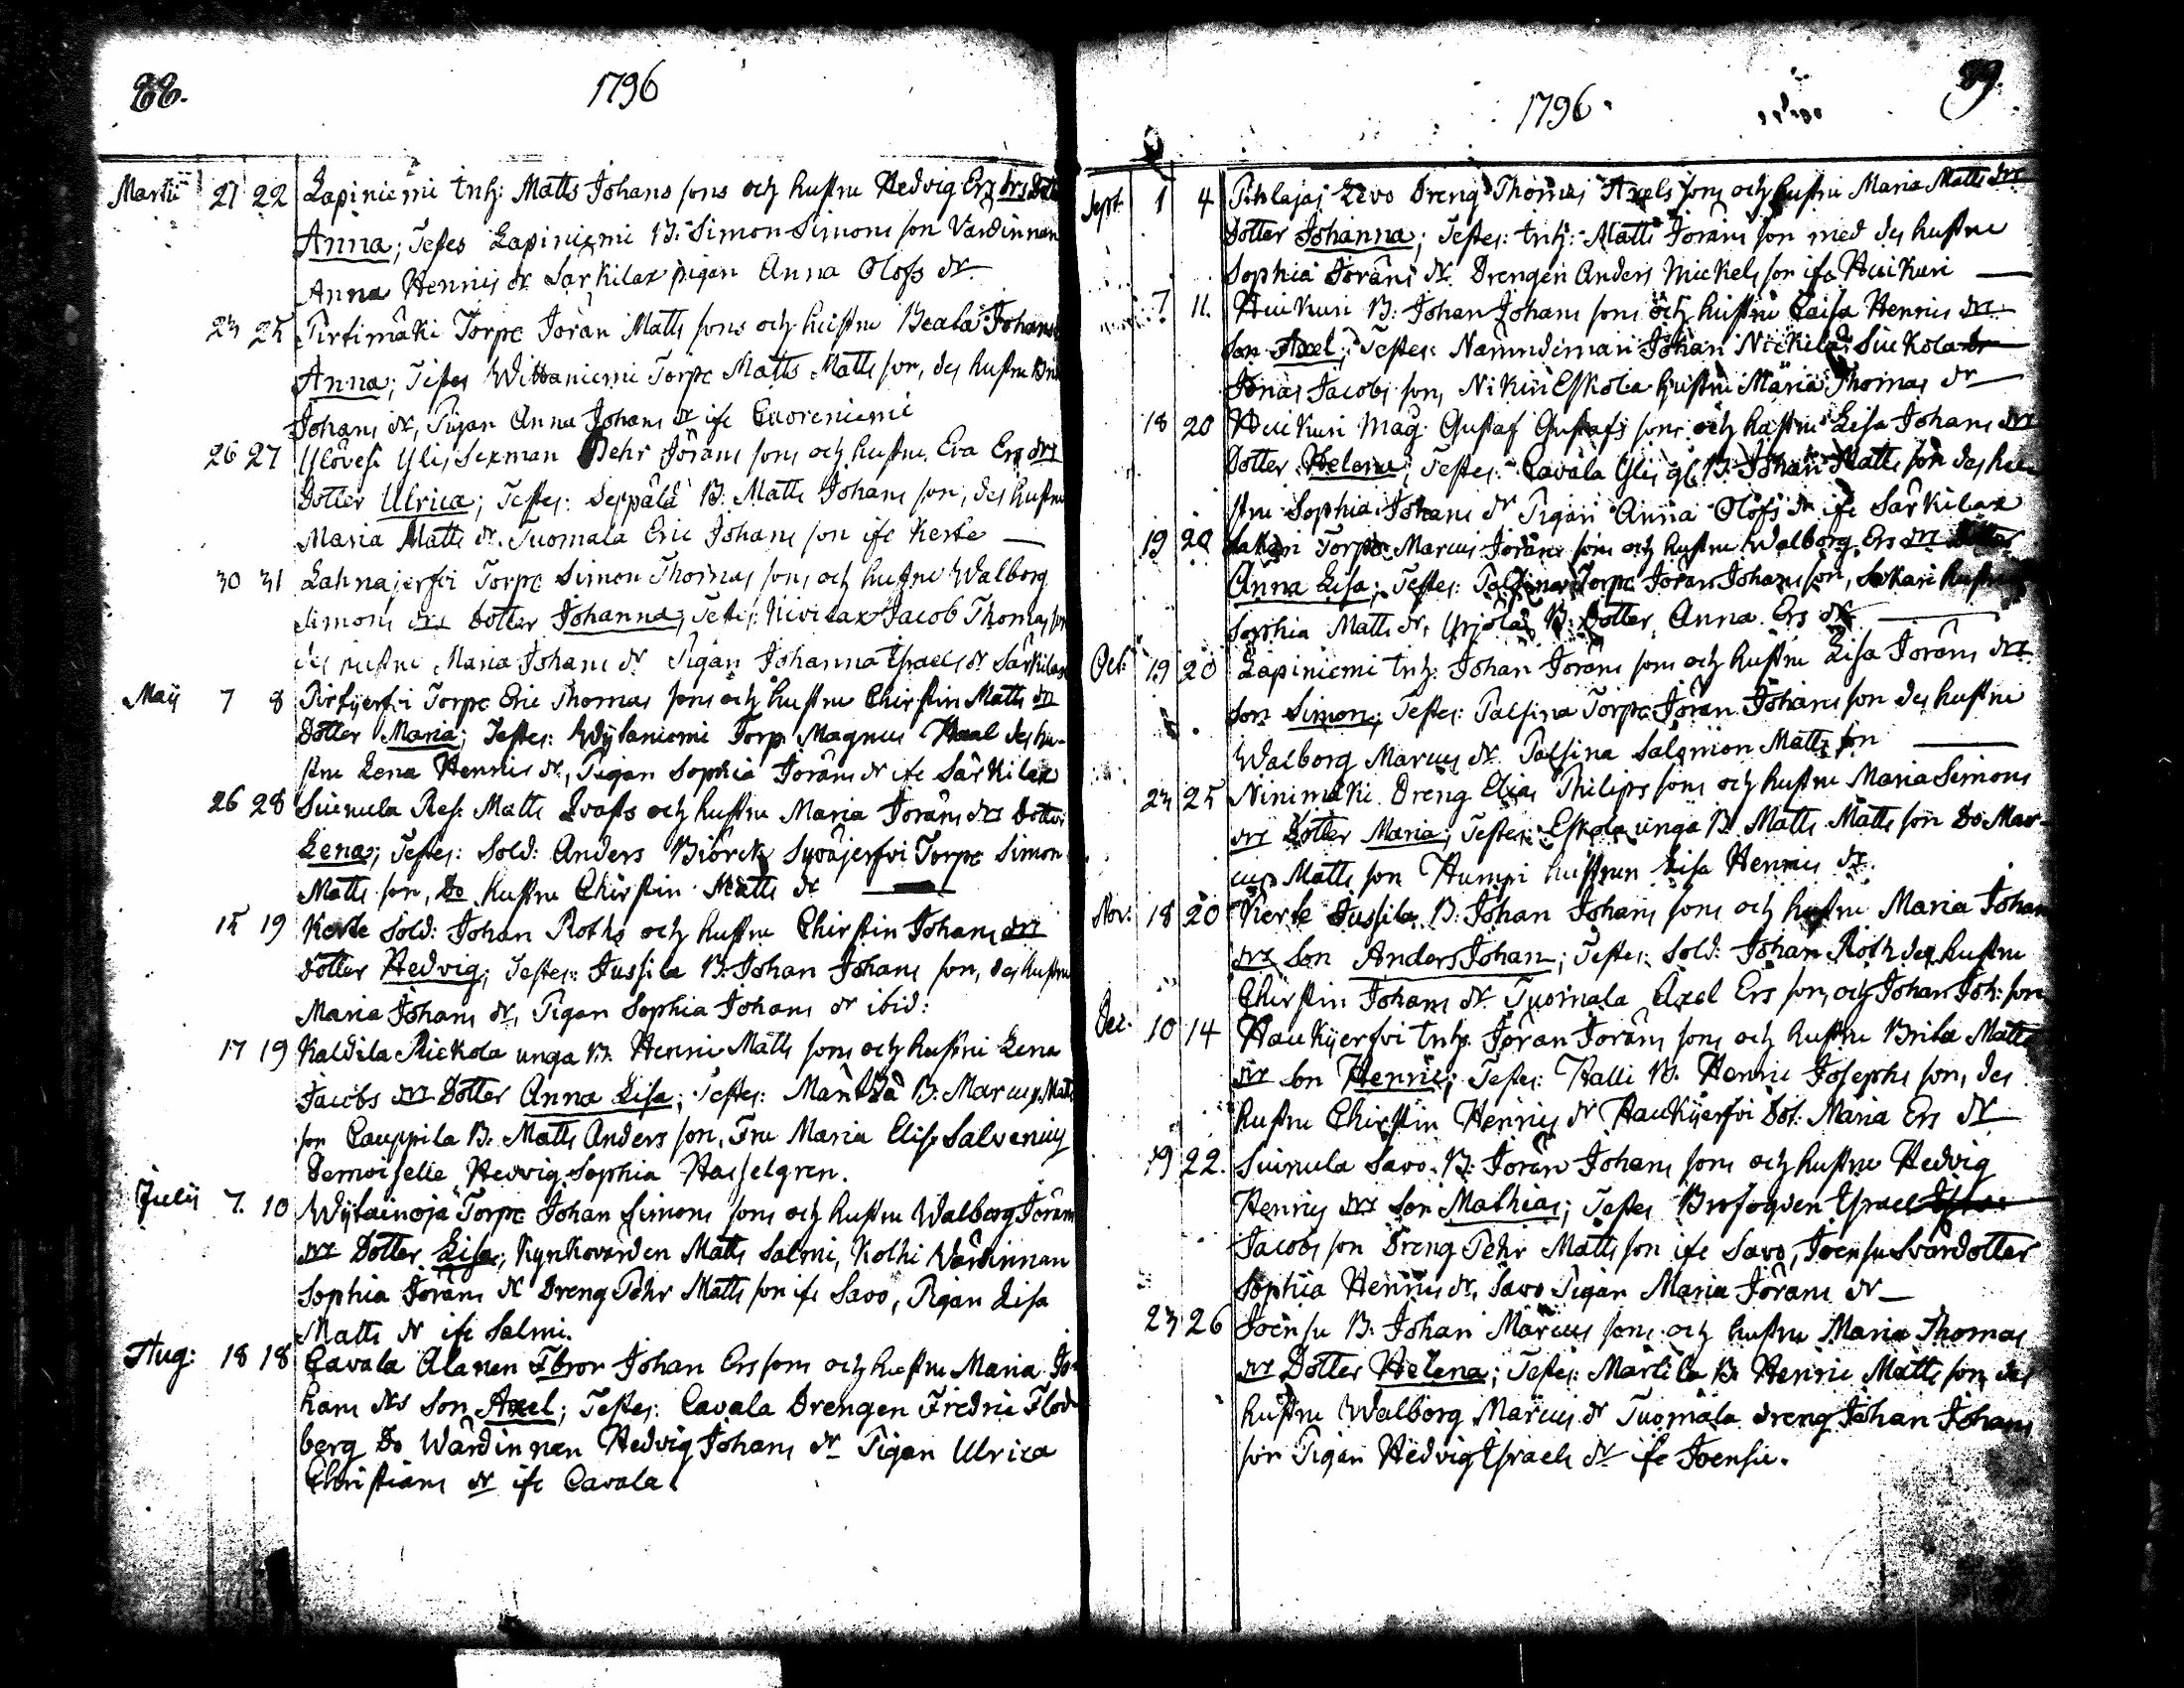 88.
1796
Martii 21 22 Lapiniemi Inh: Matts Johans sons och hustru Hedvig Ers drs
Anna; Testes Lapiniemi B: Simon Simons son Värdinnan
Anna Henrics dr Särkilax pigan Anna Olofs dr
23 25 Pirtimäki Torp: Jöran Matts sons och hustru Beata Johans
Anna; Testes Wittaniemi Torp: Matts Matts son, des hustru
Johans dr, Pigan Anna Johans dr ifr Cuoreniemi
26 27 Ylövesi Ylis Sexman Pehr Jörans sons och hustru Eva Ers drs
Dotter Ulrica; Testes: Seppälä B: Matts Johans son, des hustru
Maria Matts dr. Tuomala Eric Johans son ifr Kerte
30 31 Lahnajerfvi Torp: Simon Thomas sons och hustru Walborg
Simons drs Dotter Johanna; Testes: Kivilax Jacob Thomas son
des hustru Maria Johans dr Pigan Johanna Israels dr Särkilax
Maij 7 8 Pirtijerfvi Torp: Eric Thomas sons och hustru Chirstin Matts drs
Dotter Maria; Testes: Wijtaniemi Torp: Magnus Haal des hu-
stru Lena Henrics dr, Pigan Sophia Jörans dr ifr Särkilax
26 28 Suinula Res: Matts Qvasts och hustru Maria Jörans drs Dotter
Lena; Testes: Sold: Anders Biörck Syväjerfvi Torp: Simon
Matts son, Do hustru Chirstin Matts dr
15 19 Kerte Sold: Johan Roths och hustru Chirstin Johans drs
Dotter Hedvig; Testes: Jussila B: Johan Johans son, des hustru
Maria Johans dr, Pigan Sophia Johans dr ibid:
17 19 Kaldila Rickola unga B. Henric Matts sons och hustru Lena
Jacobs drs Dotter Anna Lisa; Testes: Mäntilä B: Marcus Matts
son Cauppila B. Matts Anders son, Fru Maria Elis: Salvenius
Demoiselle Hedvig Sophia Hasselgren.
Julii 7. 10 Wijtainoja Torp: Johan Simons sons och hustru Walborg Jörans
drs Dotter Lisa; Kyrkovärden Matts Salomi, Kolhi Wärdinnan
Sophia Jörans dr Dreng Pehr Matts son ifr Savo, Pigan Lisa
Matts dr ifr Salmi.
Aug: 18 18 Cavala Alanen Fbror Johan Ers sons och hustru Maria Jo-
hans drs Son Axel; Testes: Cavala Drengen Fredric Flod-
berg Do Wärdinnan Hedvig Johans dr Pigan Ulrica
Christians dr ifr Cavala.
89.
1796.
Sept: 1 4 Pihlajas Levo Dreng Thomas Axels sons och hustru Maria Matts drs
Dotter Johanna; Testes: Inh: Matts Jörans son med des hustru
Sophia Jörans dr. Drengen Anders Mickels son ifr Huikuri
7 11. Huikuri B: Johan Johans sons och hustru Caisa Henrics drs
Son Axel; Testes: Nämndeman Johan Nickila, Suckola
Jonas Jacobs son, Nikuu Eskola hustru Maria Thomas dr
18 20 Huikuri Mag: Gustaf Gustafs sons och hustru Lisa Johans drs
Dotter Helena; Testes: Cavala Ylis gl. B: Johan Matts son des hu-
stru Sophia Johans dr Pigan Anna Olofs dr ifr Särkilax
19 20 Sakari Torp: Marcus Jörans sons och hustru Walborg Ers drs Dotter
Anna Lisa; Testes: Palsina Torp: Jöran Johans son, Sakari hustru
Sophia Matts dr, Yrjölas B: Dotter Anna Ers dr
Oct: 19 20 Lapiniemi Inh: Johan Jörans sons och hustru Lisa Jörans drs
Son Simon; Testes: Palsina Torp: Jöran Johans son des hustru
Walborg Marcus dr. Palsina Salomon Matts son
23 25 Ninimäki Dreng Elias Philips sons och hustru Maria Simons
drs Dotter Maria; Testes: Eskola unga B. Matts Matts son Do Mar-
cus Matts son Humpi hustrun Lisa Henrics dr.
Nov: 18 20 Kerte Jussila B: Johan Johans sons och hustru Maria Johans
drs Son Anders Johan; Testes: Sold: Johan Roth des hustru
Chirstin Johans dr. Tuomala Axel Ers son, och Johan Joh: son
Dec: 10 14 Haukijerfvi Inh: Jöran Jörans sons och hustru Brita Matts
drs Son Henric; Testes: Halli B. Henric Josephs son, des
hustru Chirstin Henrics dr Haukijerfvi Dot: Maria Ers dr
19 22. Suinula Savo B: Jöran Johans sons och hustru Hedvig
Henrics drs Son Mathias; Testes Brofogden Israel
Jacobs son Dreng Pehr Matts son ifr Savo, Joensu Svärdotter
Sophia Henrics dr, Savo Pigan Maria Jörans dr
23 26 Joensu B: Johan Marcus sons och hustru Maria Thomas
drs Dotter Helena; Testes: Martila B Henric Matts son, des
hustru Walborg Marcus dr Tuomala dreng Johan Johans
son Pigan Hedvig Israels dr ifr Joensu.